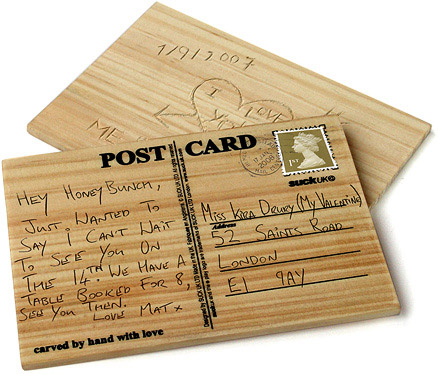 1/9/2007
I
LOVE
ME
POST CARD
HEY HONEYBUNCH,
JUST WANTED TO
SAY I CAN'T WAIT
TO SEE YOU ON
THE 14TH. WE HAVE A
TABLE BOOKED FOR 8,
SEE YOU THEN.
LOVE MAT x
carved by hand with love
1ST
suck UK
MISS KIRA DRURY (MY VALENTINE)
Address
52 SAINTS ROAD
LONDON
E1 9AY